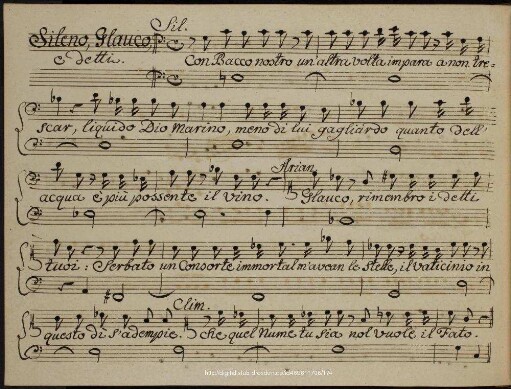 Sil.
Sileno, Glauco,
e detti.
Con Bacco nostro un'altra volta impara a non tre=
scar, liquido Dio Marino, meno di lui gagliardo quanto dell'
Arian.
acqua è più possente il vino. Glauco, rimembro i detti
tuoi: Serbato un Consorte immortal m'avean le Stelle, il Vaticinio in
Clim.
questo dì s'adempie. che quel Nume tu sia nol vuole il Fato.